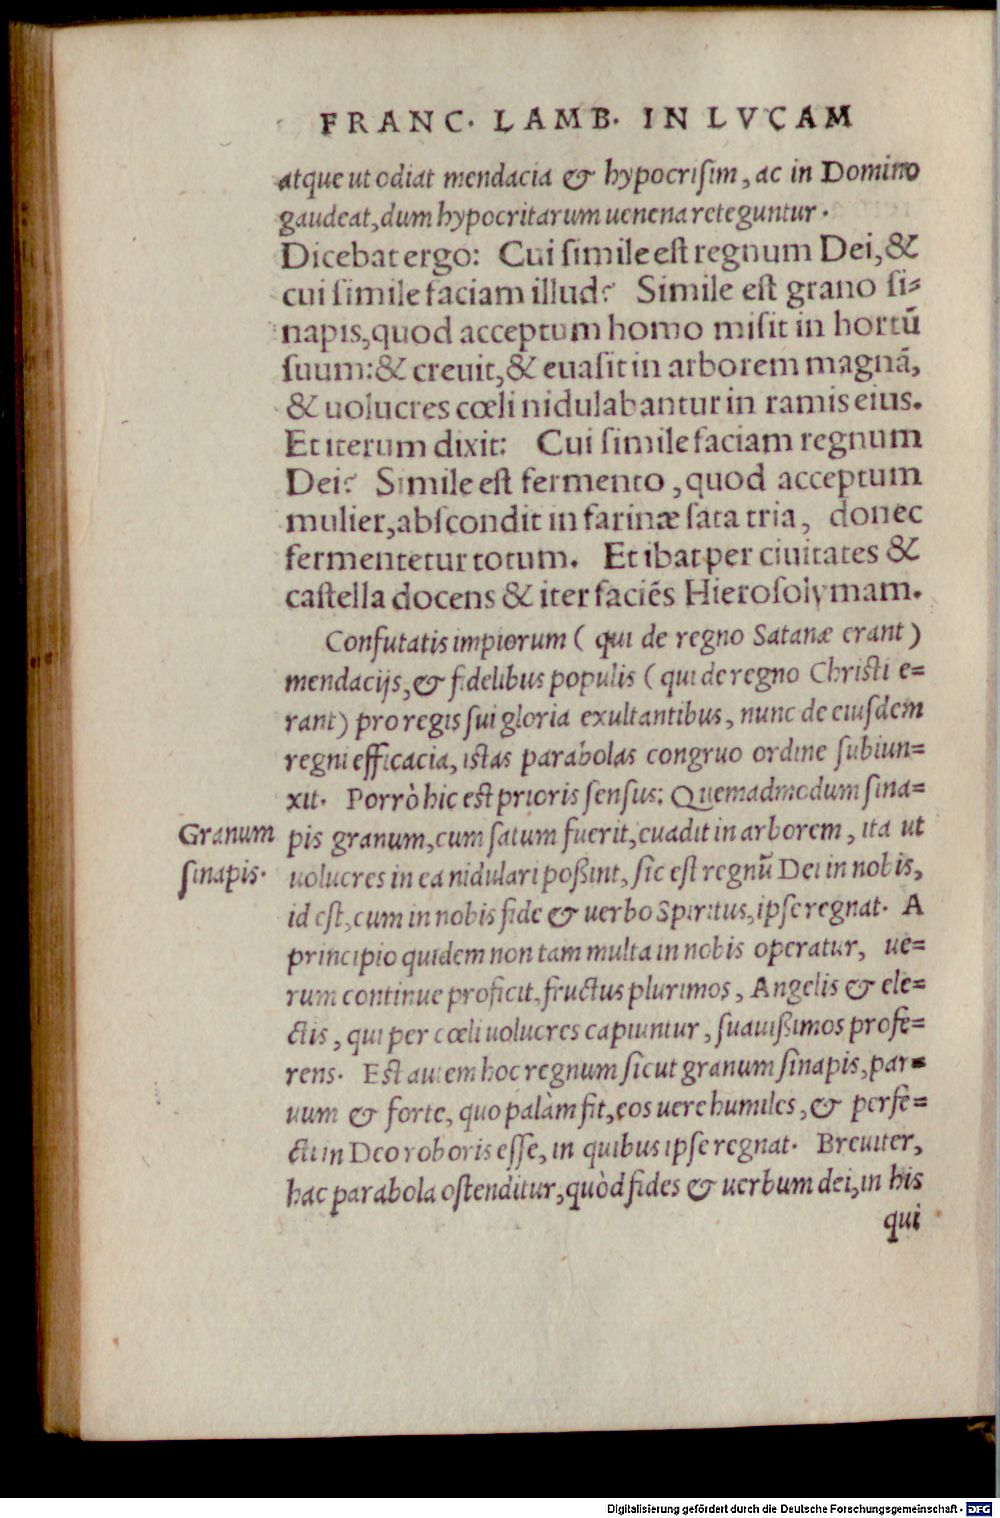 FRANC. LAMB. IN LVCAM
atque ut odiat mendacia & hypocrisim, ac in Domino
gaudeat, dum hypocritarum uenena reteguntur.
Dicebat ergo: Cui simile est regnum Dei, &
cui simile faciam illud? Simile est grano si⸗
napis, quod acceptum homo misit in hortū
suum: & creuit, & euasit in arborem magnā,
& uolucres cœli nidulabantur in ramis eius.
Et iterum dixit: Cui simile faciam regnum
Dei? Simile est fermento, quod acceptum
mulier, abscondit in farinæ sata tria, donec
fermentetur totum. Et ibat per ciuitates &
castella docens & iter faciēs Hierosolymam.
Confutatis impiorum (qui de regno Satanæ erant)
mendacijs, & fidelibus populis (qui de regno Christi e⸗
rant) pro regis sui gloria exultantibus, nunc de eiusdem
regni efficacia, istas parabolas congruo ordine subiun⸗
xit. Porrò hic est prioris sensus: Quemadmodum sina⸗
Granum pis granum, cum satum fuerit, euadit in arborem, ita ut
sinapis. uolucres in ea nidulari poßint, sic est regnū Dei in nobis,
id est, cum in nobis fide & uerbo Spiritus, ipse regnat. A
principio quidem non tam multa in nobis operatur, ue⸗
rum continue proficit, fructus plurimos, Angelis & ele⸗
ctis, qui per cœli uolucres capiuntur, suauißimos profe⸗
rens. Est autem hoc regnum sicut granum sinapis, par⸗
uum & forte, quo palàm fit, eos uere humiles, & perfe⸗
cti in Deo roboris esse, in quibus ipse regnat. Breuiter,
hac parabola ostenditur, quòd fides & uerbum dei, in his
qui
Digitalisierung gefördert durch die Deutsche Forschungsgemeinschaft - DFG